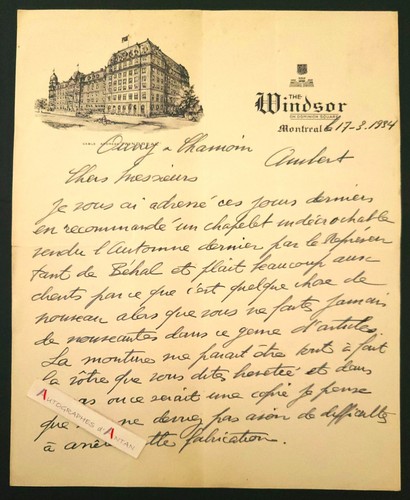 THE
Windsor
ON DOMINION SQUARE
Montreal 17-3-1934
Ambert
Chers Messieurs
Je vous ai adressé ces jours derniers
en recommandé un chapelet indécrochable
vendu l'Automne dernier par le Représen
tant de Béhal et plait beaucoup aux
clients par ce que c'est quelque chose de
nouveau alors que vous ne faites jamais
de nouveautés dans ce genre d'articles.
La monture me parait être tout à fait
la vôtre que vous dites brevetée et dans
as où ce serait une copie je pense
que ne devez pas avoir de difficultés
à arrêter cette fabrication.
AUTOGRAPHES d'ANTAN